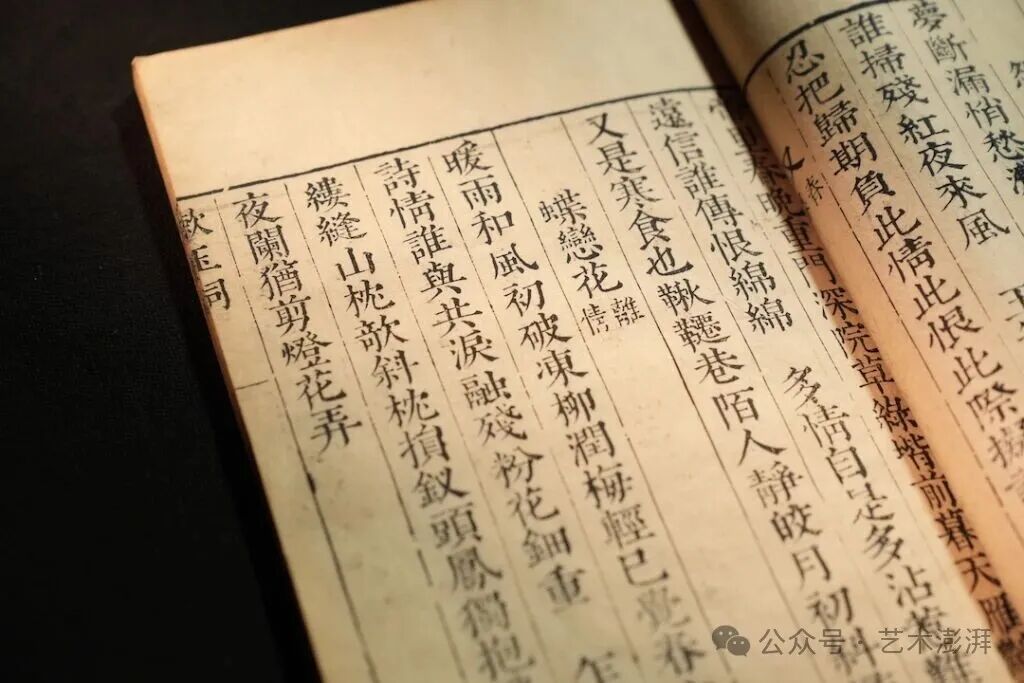 夢斷漏悄愁
誰掃殘紅夜來風
忍把歸期負此情此恨此際擬
又春
春晚重門深院草綠堦前暮天雁
遠信誰傳恨綿綿 多情自是多沾惹難
又是寒食也鞦韆巷陌人靜皎月初斜
蝶戀花離情
暖雨和風初破凍柳潤梅輕已覺春
詩情誰與共淚融殘粉花鈿重
縷縫山枕欹斜枕損釵頭鳳獨抱
夜闌猶剪燈花弄
漱玉詞
公众号·艺术澎湃